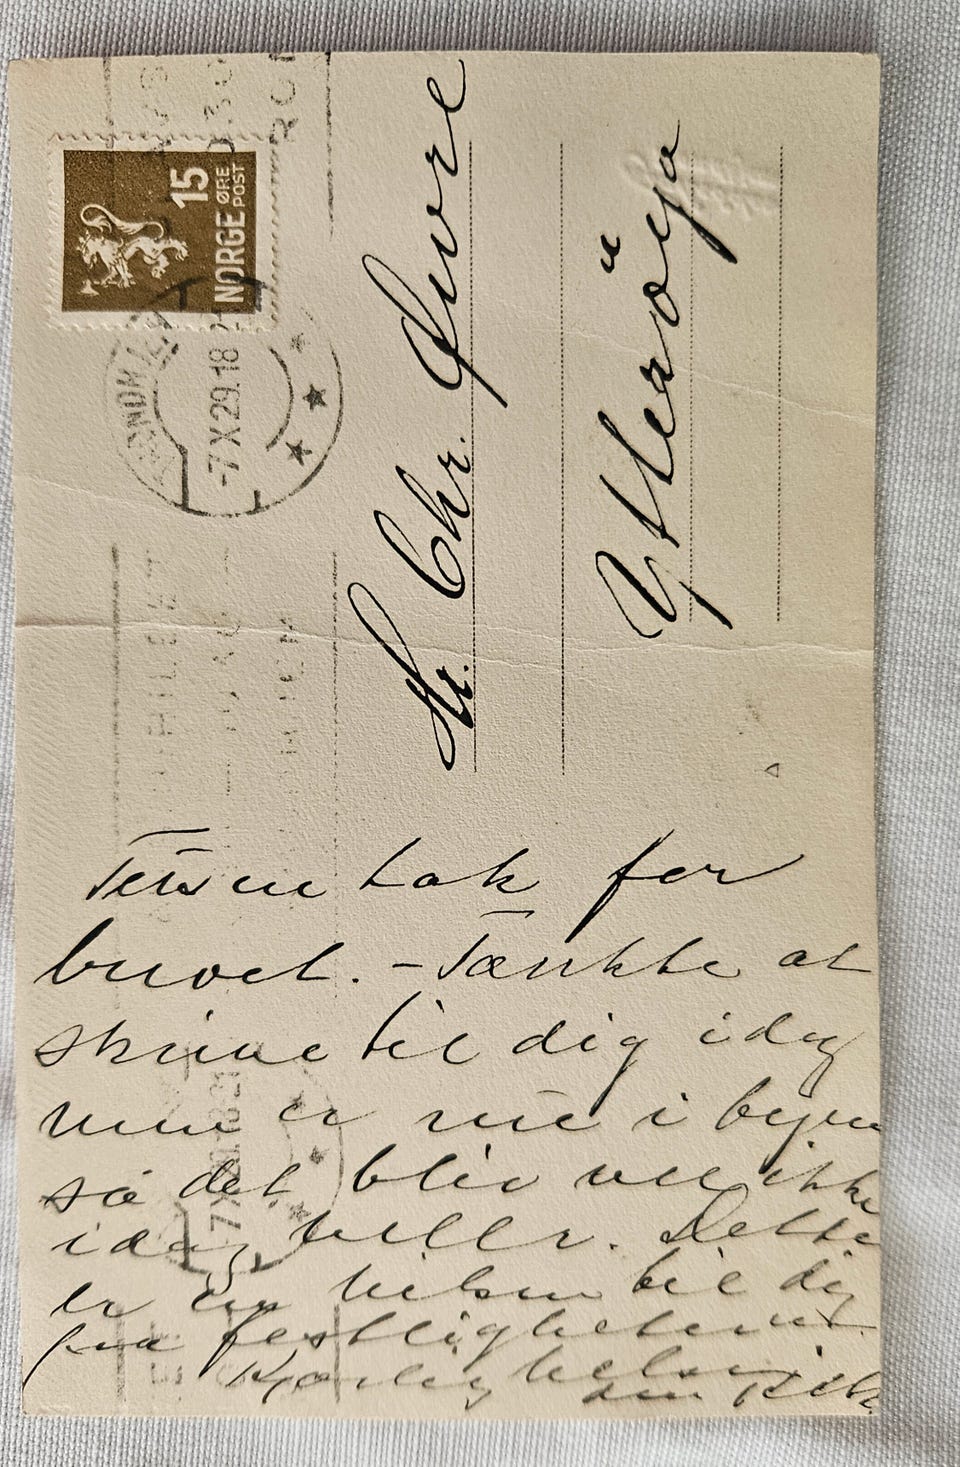 15
ØRE
NORGE
POST
TRONDHJEM
-7 X 29. 18
Hr. Chr. Qvore
Ytteröya
tak for
brevet. - Tænkte at
skrive til dig idag
men er nu i byen
så det bliv vel ikke
idag heller. Dette
er en hilsen til dig
fra festlighetene.
Kjærlig hilsen